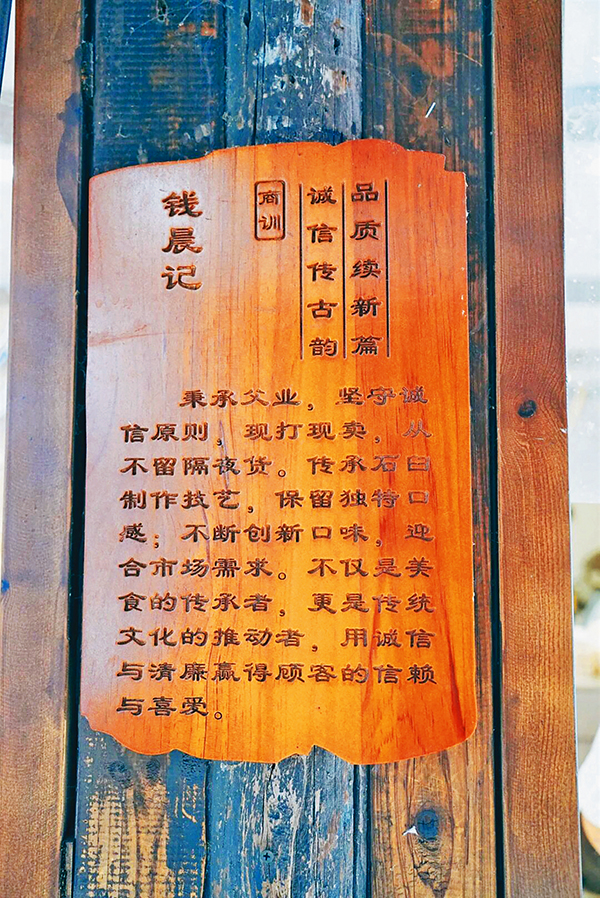 钱晨记
商训
诚信传古韵
品质续新篇
秉承父业，坚守诚
信原则，现打现卖，从
不留隔夜货。传承石臼
制作技艺，保留独特口
感；不断创新口味，迎
合市场需求。不仅是美
食的传承者，更是传统
文化的推动者，用诚信
与清廉赢得顾客的信赖
与喜爱。